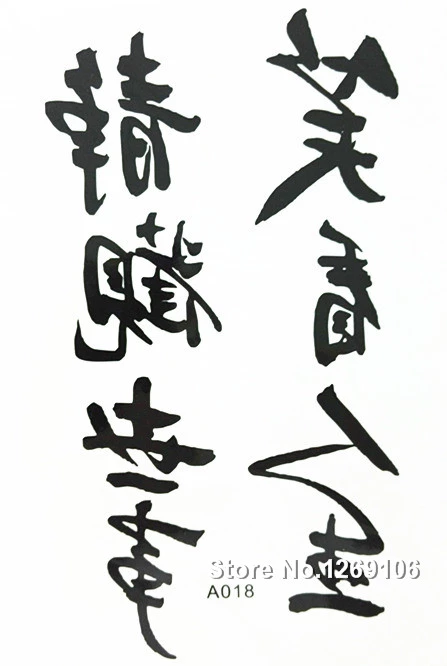 静觀世事
笑看人生
Store No.1269106
A018